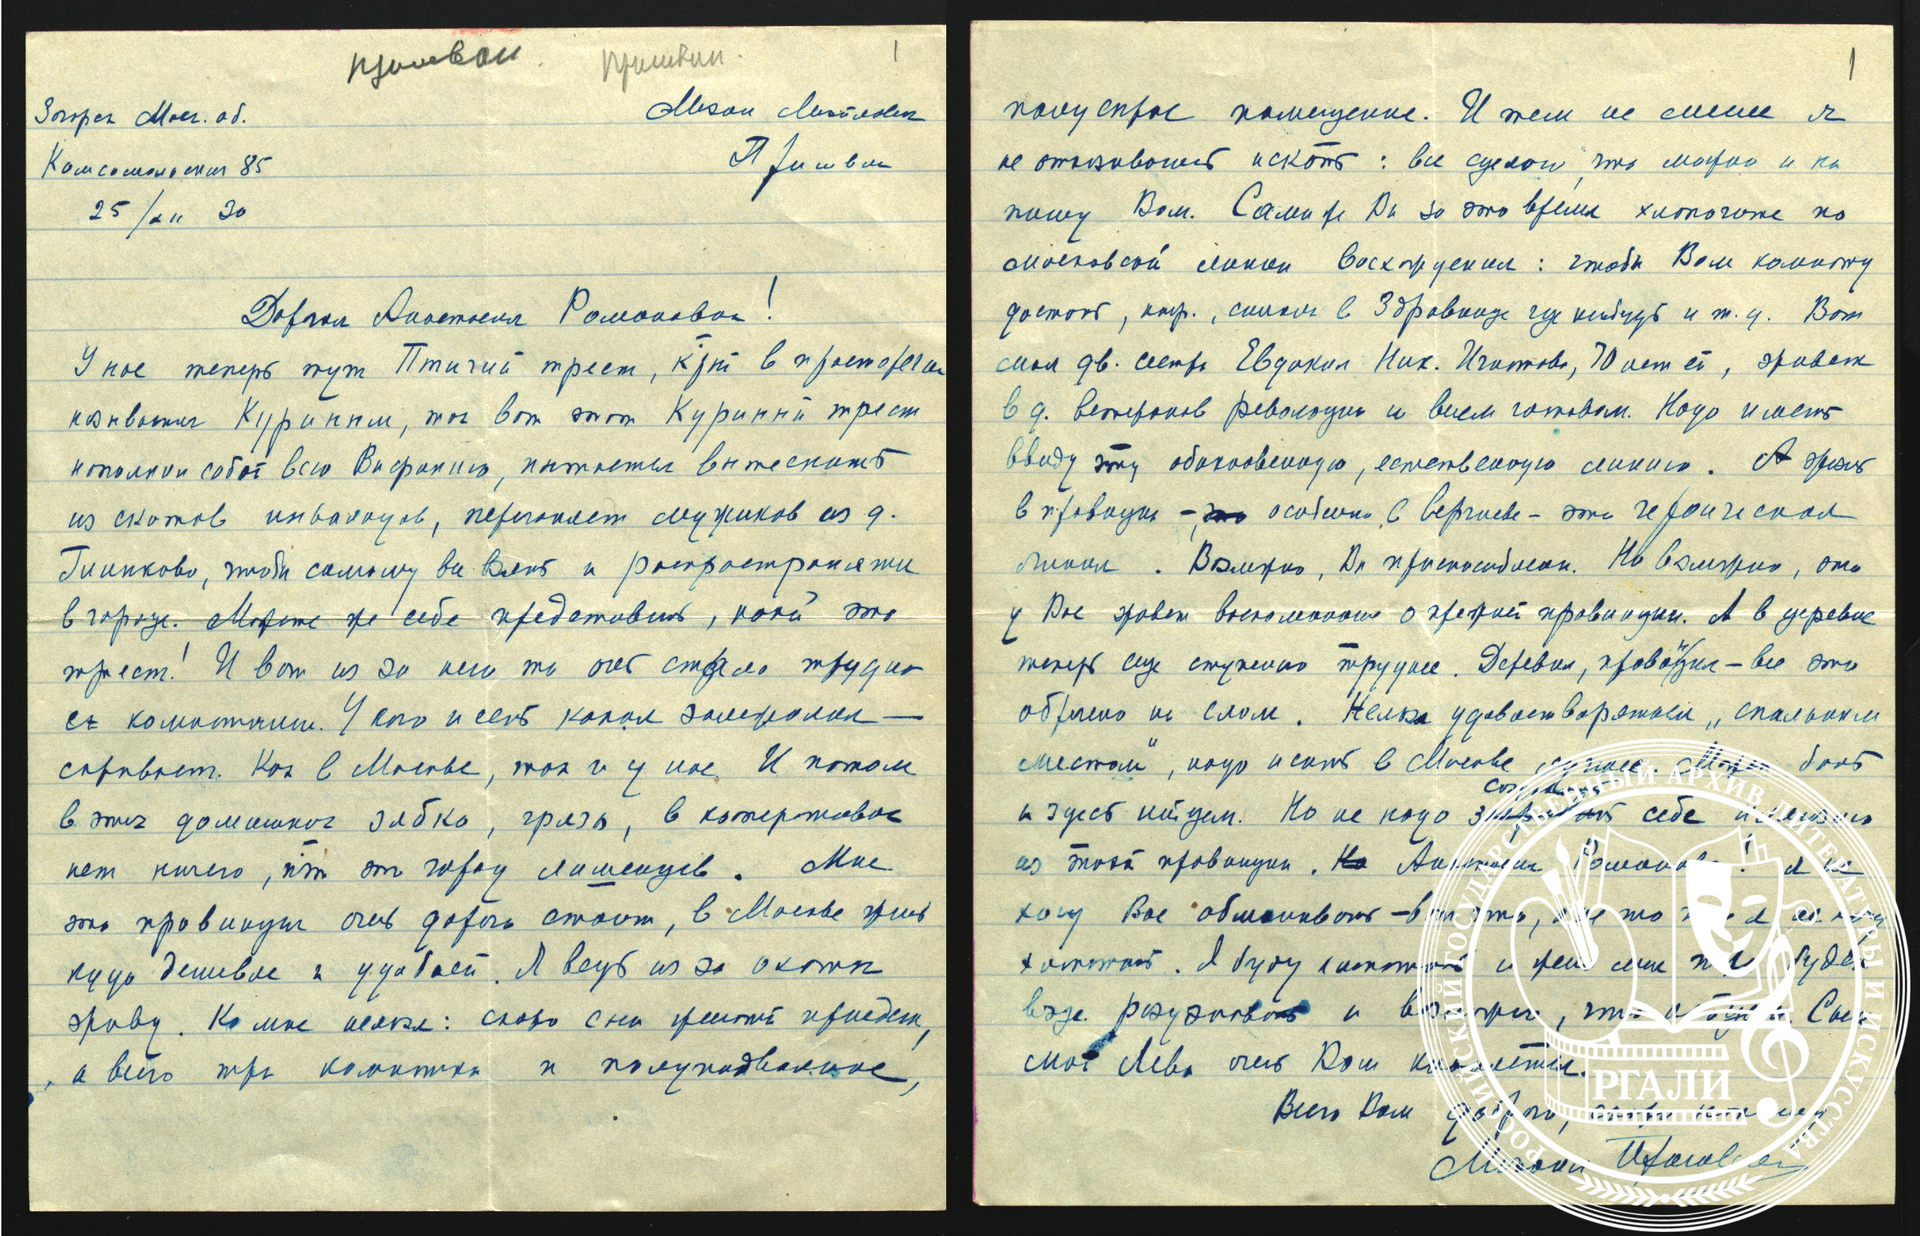 Пришвин. Пришвин. 1
Загорск Моск. об.
Комсомольская 85
25/XII 30
Михаил Михайлович
Пришвин
Дорогая Анастасия Романовна!
У нас теперь тут Птичий трест, кот в просторечии
называется Куриным, так вот этот Куриный трест
наполнил собой всю Вифанию, пытается вытеснить
из скитов инвалидов, перегоняет мужиков из д.
Глинково, чтобы самому все взять и распространяться
в городе. Можете же себе представить, какой это
трест! И вот из за него то очень стало трудно
с комнатами. У кого и есть какая замерзлая —
скрывает. Как в Москве, так и у нас. И потом
в этих домишках зябко, грязь, в кооперативах
нет ничего, это город лишенцев. Мне
эта провинция очень дорого стоит, в Москве жить
куда дешевле и удобней. Я ведь из за охоты
живу. Ко мне нельзя: скоро сын с женой приедет,
а всего три комнатки и полуподвальное,
1
полусырое помещение. И тем не менее я
не отказываюсь искать: все сделаю, что можно и на
пишу Вам. Сами же Вы за это время хлопочите по
московской линии восхождения: чтобы Вам комнату
достать, напр., в Здравнице где нибудь и т. д. Вот
моя дв. сестра Евдокия Ник. Игнатова, 70 лет ей, живет
в д. ветеранов революции и всем готовом. Надо иметь
ввиду эту обыкновенную, естественную линию. А жить
в провинции – особенно в Сергиеве – это героическая
линия. Возможно, Вы приспособлены. Но возможно, это
у Вас живет воспоминание о прежней провинции. А в деревне
теперь еще ступенью труднее. Деревня, провинция – все это
обречено на слом. Нельзя удовлетворяться „спальным
местом", надо искать в Москве лучшее. Может быть
и здесь найдем. Но не надо создавать себе иллюзию
из такой провинции. Анастасия Романовна! я не
хочу Вас обманывать – вот что, а не то что я не хочу
хлопотать. Я буду хлопотать и жена моя тоже будет
везде разузнавать и
мой Лева очень Вам кланяется.
Всего Вам доброго,
Михаил Пришвин
РОССИЙСКИЙ ГОСУДАРСТВЕННЫЙ АРХИВ ЛИТЕРАТУРЫ И ИСКУССТВА
©
РГАЛИ